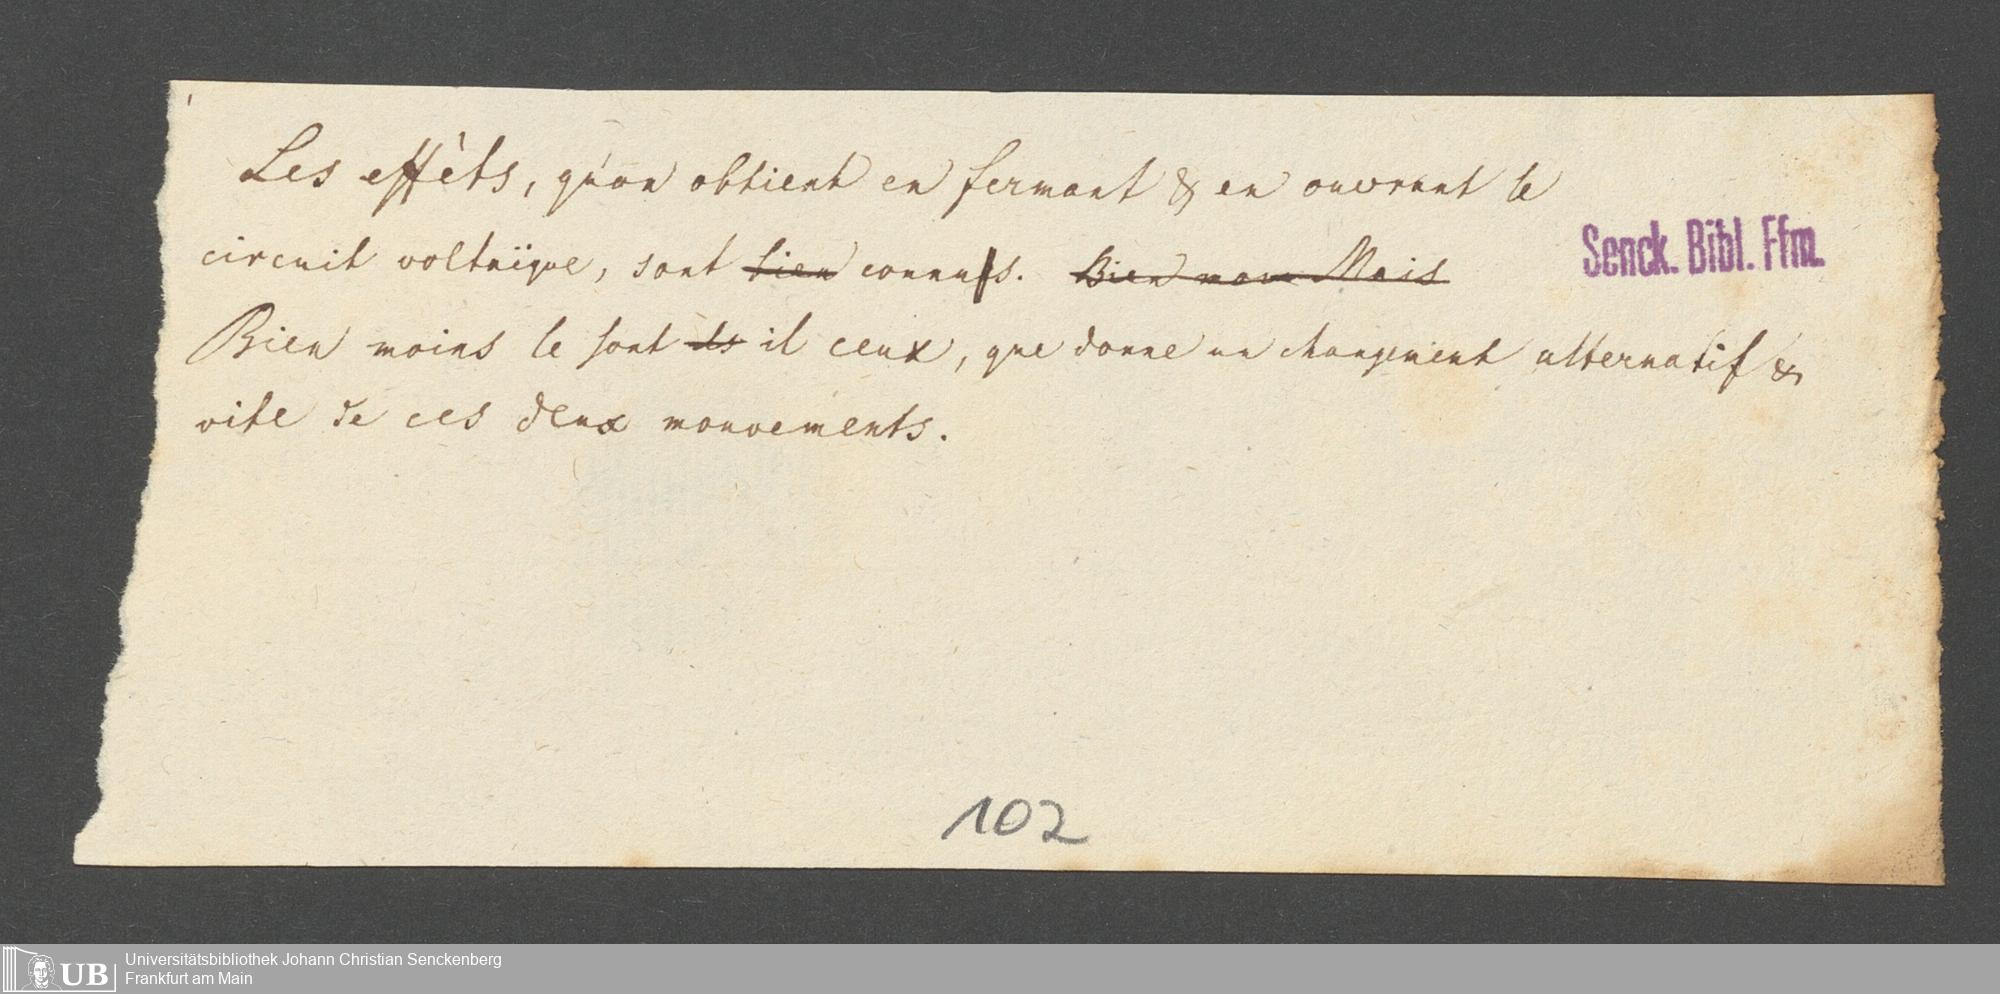 Les effèts, qu'on obtient en fermant & en ouvrant le
Senck. Bibl. Ffm.
circuit voltaïque, sont bien connus. Bien Mais
Bien moins le sont il ceux, que donne un changement alternatif &
vite de ces deux mouvements.
102
UB
Universitätsbibliothek Johann Christian Senckenberg
Frankfurt am Main